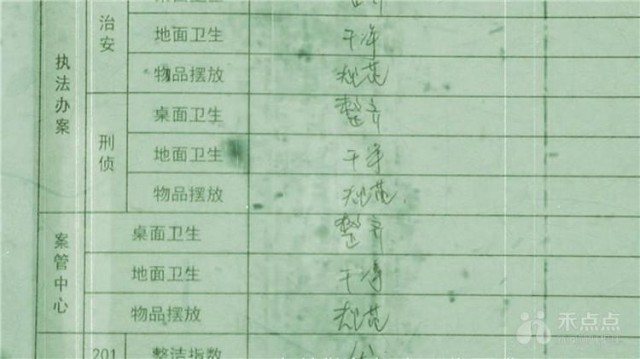 执法办案
治安
地面卫生 干净
物品摆放 规范
刑侦
桌面卫生 整齐
地面卫生 干净
物品摆放 规范
案管中心
桌面卫生 整齐
地面卫生 干净
物品摆放 规范
201 整洁指数
禾点点